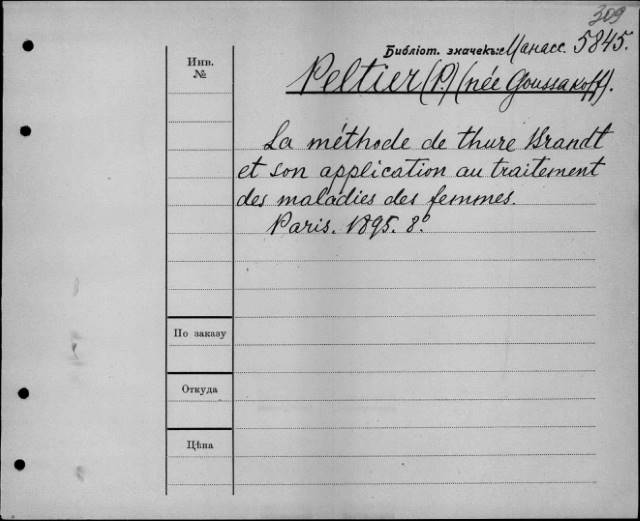 309
Библіот. значекъ: Манасс. 5845.
Инв.
№
Peltier (P.) (née Goussakoff).
La méthode de thure Brandt
et son application au traitement
des maladies des femmes.
Paris. 1895. 8º
По заказу
Откуда
Цѣна